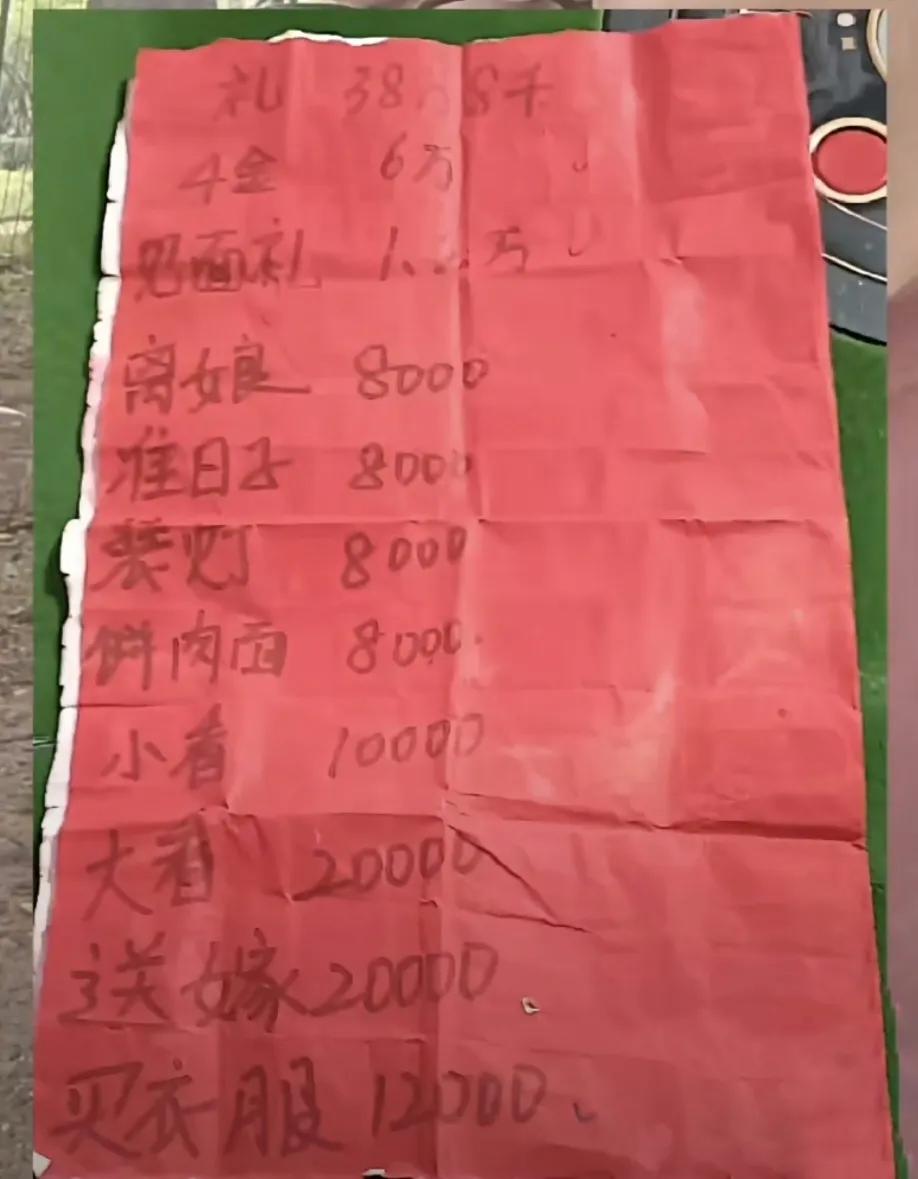 礼 38万8千
4金 6万
见面礼 1.1万
离娘 8000
准日子 8000
装灯 8000
饼肉面 8000
小看 10000
大看 20000
送嫁 20000
买衣服 12000